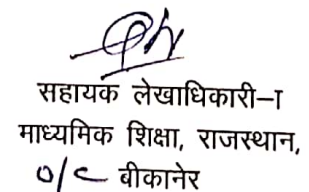 सहायक लेखाधिकारी-I
माध्यमिक शिक्षा, राजस्थान,
o/c बीकानेर